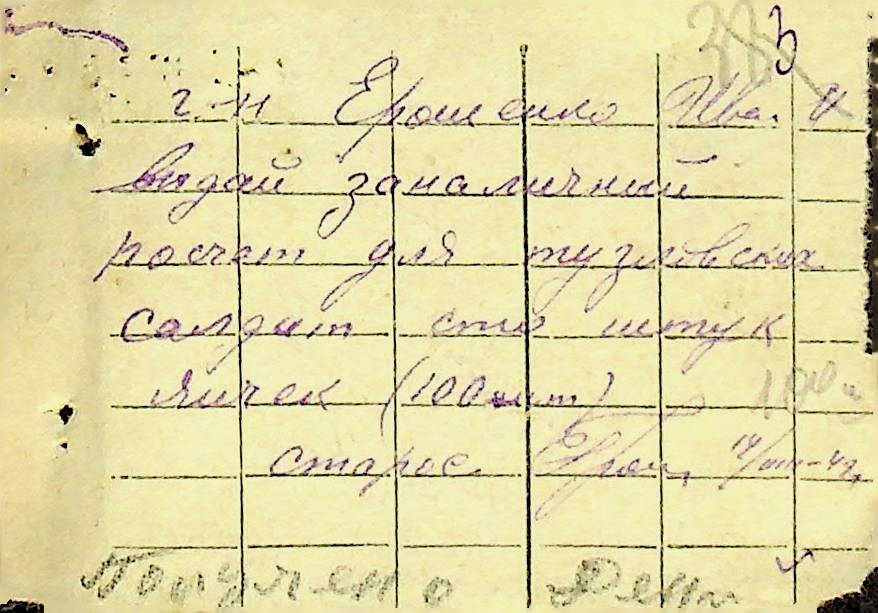 3
г-н Ерошенко Ива. И
выдай заналичный
росчет для тузловских
салдат сто штук
яичек (100 шт)
старос. Ерош,
Получено